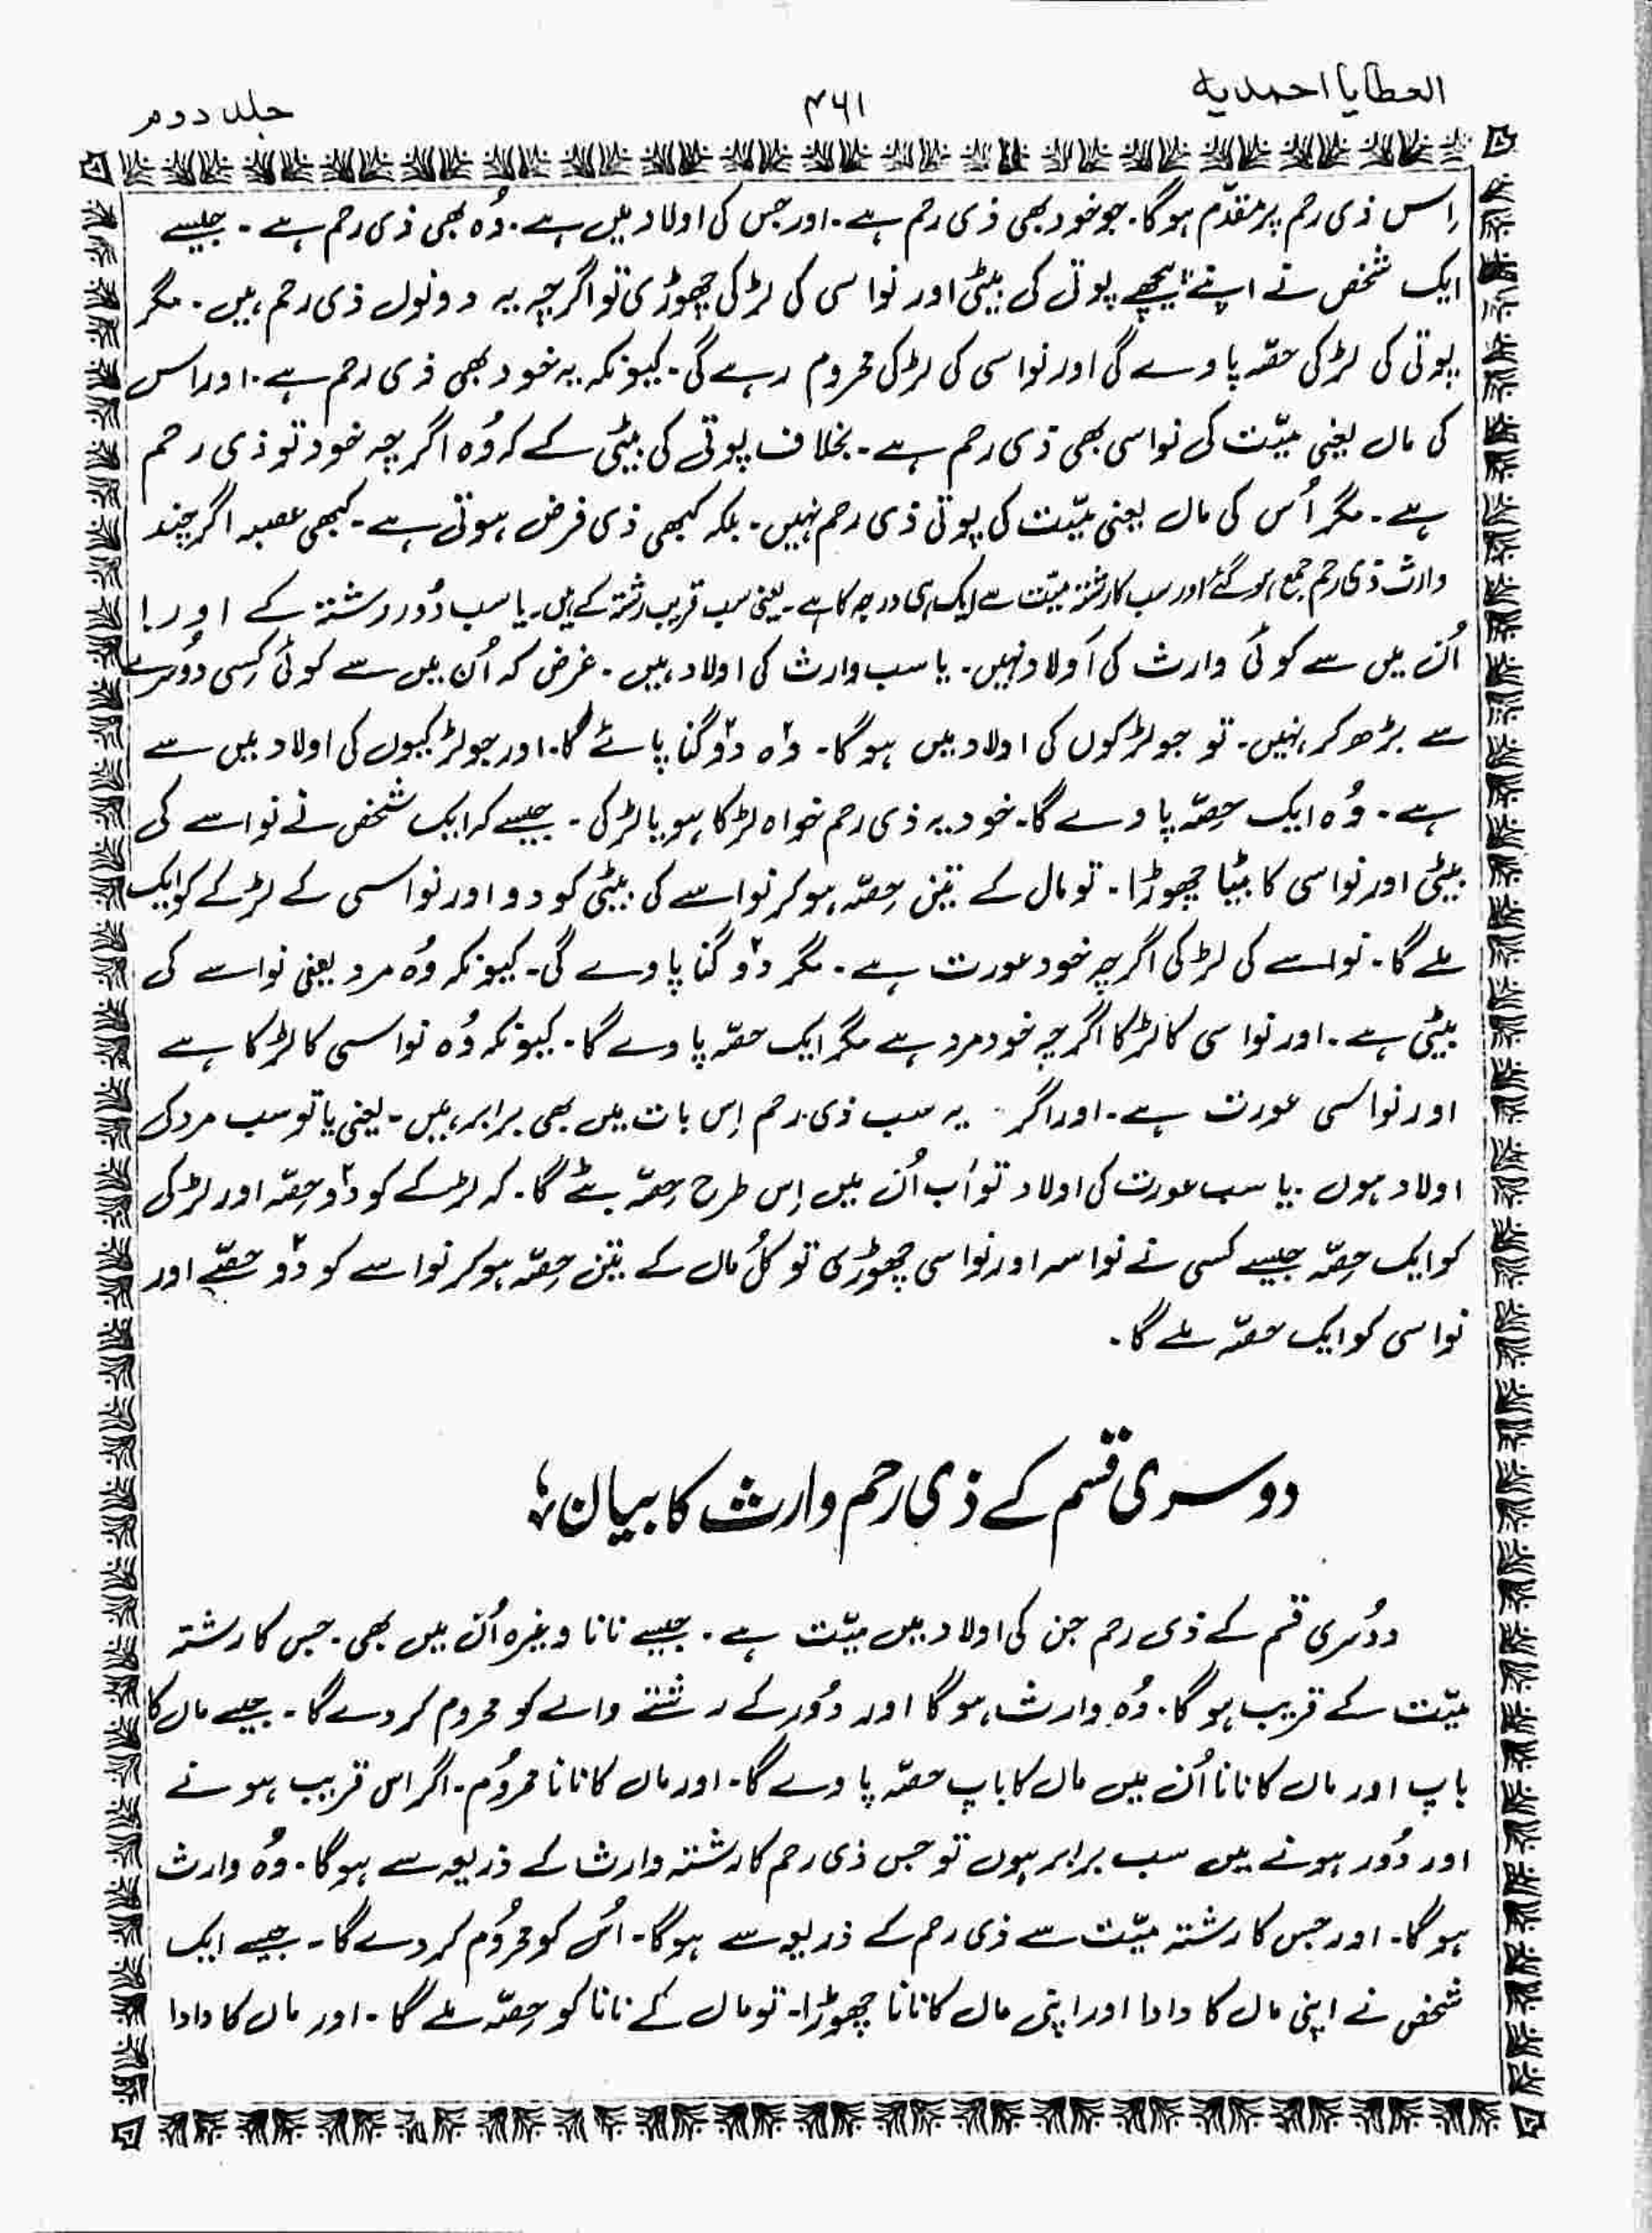 العطایا احمدیه
۴۶۱
جلد دوم
اِس ذی رحم پر مقدّم ہوگا۔ جو خود بھی ذی رحم ہے۔ اور جس کی اولاد میں ہے۔ وُہ بھی ذی رحم ہے۔ جیسے
ایک شخص نے اپنے پیچھے پوتی کی بیٹی اور نواسی کی لڑکی چھوڑی تو اگرچہ یہ دونوں ذی رحم ہیں۔ مگر
پوتی کی لڑکی حصّہ پاوے گی اور نواسی کی لڑکی محروم رہے گی۔ کیونکہ یہ خود بھی ذی رحم ہے۔ اور اس
کی ماں یعنی میّت کی نواسی بھی ذی رحم ہے۔ بخلاف پوتی کی بیٹی کے کہ وُہ اگرچہ خود تو ذی رحم
ہے۔ مگر اُس کی ماں یعنی میّت کی پوتی ذی رحم نہیں۔ بلکہ کبھی ذی فرض ہوتی ہے۔ کبھی عصبہ اگر چند
وارث ذی رحم جمع ہو گئے اور سب کا رشتہ میّت سے ایک ہی درجہ کا ہے۔ یعنی سب قریب رشتہ کے ہیں۔ یا سب دُور رشتہ کے اور !
اُن میں سے کوئی وارث کی اَولاد نہیں۔ یا سب وارث کی اولاد ہیں۔ غرض کہ اُن میں سے کوئی کِسی دوُسرے
سے بڑھ کر نہیں۔ تو جو لڑکوں کی اولاد میں ہوگا۔ وہ دوؔ گنا پائے گا۔ اور جو لڑکیوں کی اولاد میں سے
ہے۔ وُہ ایک حِصّہ پاوے گا۔ خود یہ ذی رحم خواہ لڑکا ہو یا لڑکی۔ جیسے کہ ایک شخص نے نواسے کی
بیٹی اور نواسی کا بیٹا چھوڑا۔ تو مال کے تین حِصّہ ہو کر نواسے کی بیٹی کو دو اور نواسی کے لڑکے کو ایک
ملے گا۔ نواسے کی لڑکی اگرچہ خود عورت ہے۔ مگر دوؔ گنا پاوے گی۔ کیونکہ وُہ مرد یعنی نواسے کی
بیٹی ہے۔ اور نواسی کا لڑکا اگرچہ خود مرد ہے مگر ایک حصّہ پاوے گا۔ کیونکہ وُہ نواسی کا لڑکا ہے
اور نواسی عورت ہے۔ اور اگر یہ سب ذی رحم اِس بات میں بھی برابر ہیں۔ یعنی یا تو سب مرد کی
اولاد ہوں۔ یا سب عورت کی اولاد تو اَب اُن میں اِس طرح حِصّہ بٹے گا۔ کہ لڑکے کو دوؔ حِصّہ اور لڑکی
کو ایک حِصّہ جیسے کسی نے نواسہ اور نواسی چھوڑی تو کُل مال کے تین حِصّہ ہو کر نواسے کو دوؔ حصّے اور
نواسی کو ایک حصّہ ملے گا۔
دوسری قسم کے ذی رحم وارث کا بیان؛
دوُسری قسم کے ذی رحم جن کی اولاد میں میّت ہے۔ جیسے نانا وغیرہ اُن میں بھی۔ جس کا رشتہ
میّت کے قریب ہوگا۔ وُہ وارث ہوگا اور دُور کے رشتے والے کو محروم کر دے گا۔ جیسے ماں کا
باپ اور ماں کا نانا اُن میں ماں کا باپ حصّہ پاوے گا۔ اور ماں کا نانا محروُم۔ اگر اس قریب ہونے
اور دُور ہونے میں سب برابر ہوں تو جس ذی رحم کا رشتہ وارث کے ذریعہ سے ہوگا۔ وُہ وارث
ہوگا۔ اور جس کا رشتہ میّت سے ذی رحم کے ذریعہ سے ہوگا۔ اُس کو محروُم کر دے گا۔ جیسے ایک
شخص نے اپنی ماں کا دادا اور اپنی ماں کا نانا چھوڑا۔ تو ماں کے نانا کو حِصّہ ملے گا۔ اور ماں کا دادا